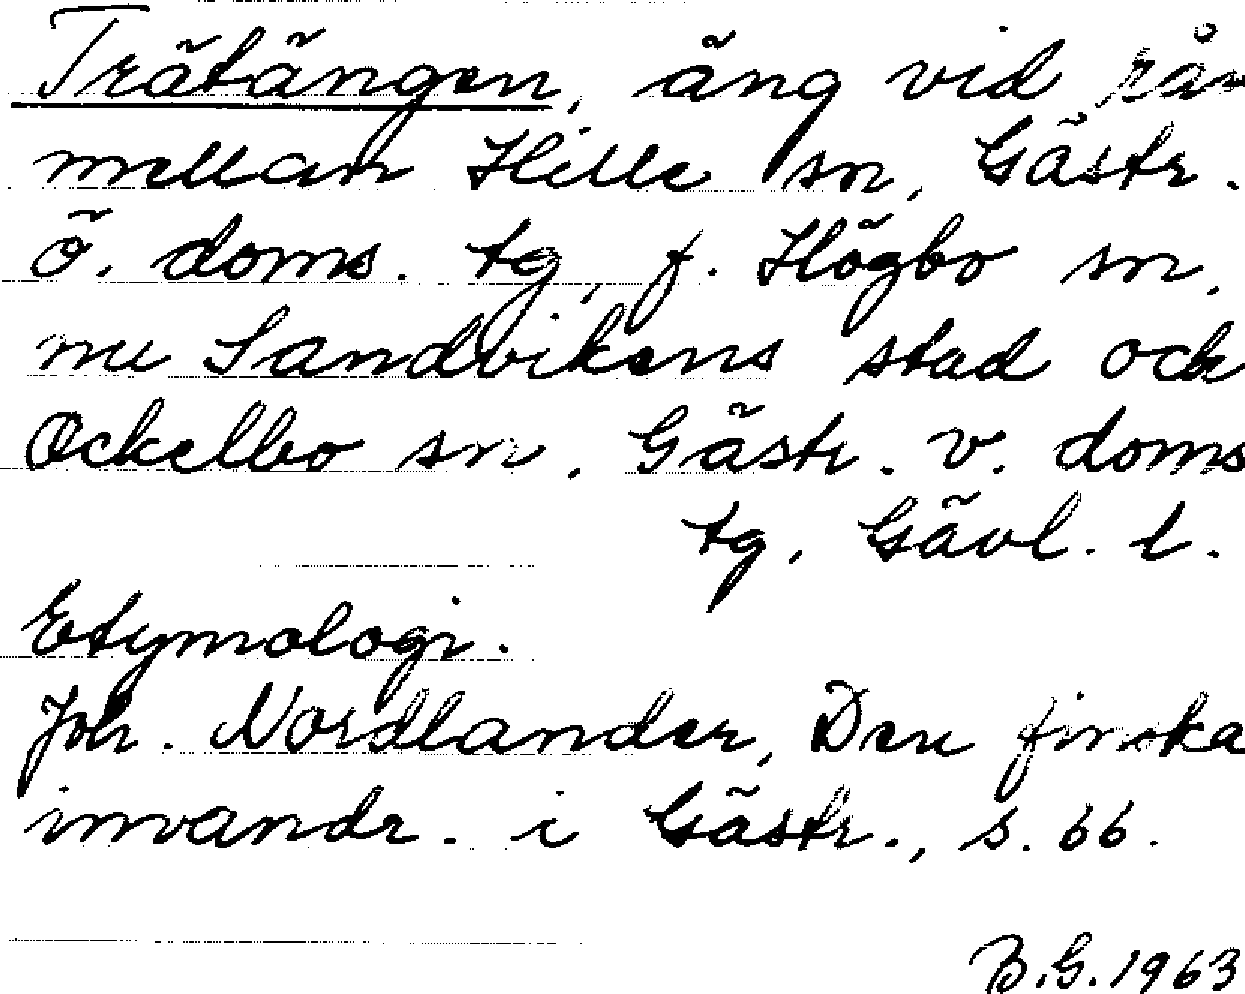 Trätängen, äng vid rån
mellan Hille sn, Gästr.
ö. doms. tg, f. Högbo sn,
nu Sandvikens stad och
Ockelbo sn. Gästr. v. doms
tg, Gävl. l.
Etymologi.
Joh. Nordlander, Den finska
invandr. i Gästr., s. 66.
B.G. 1963